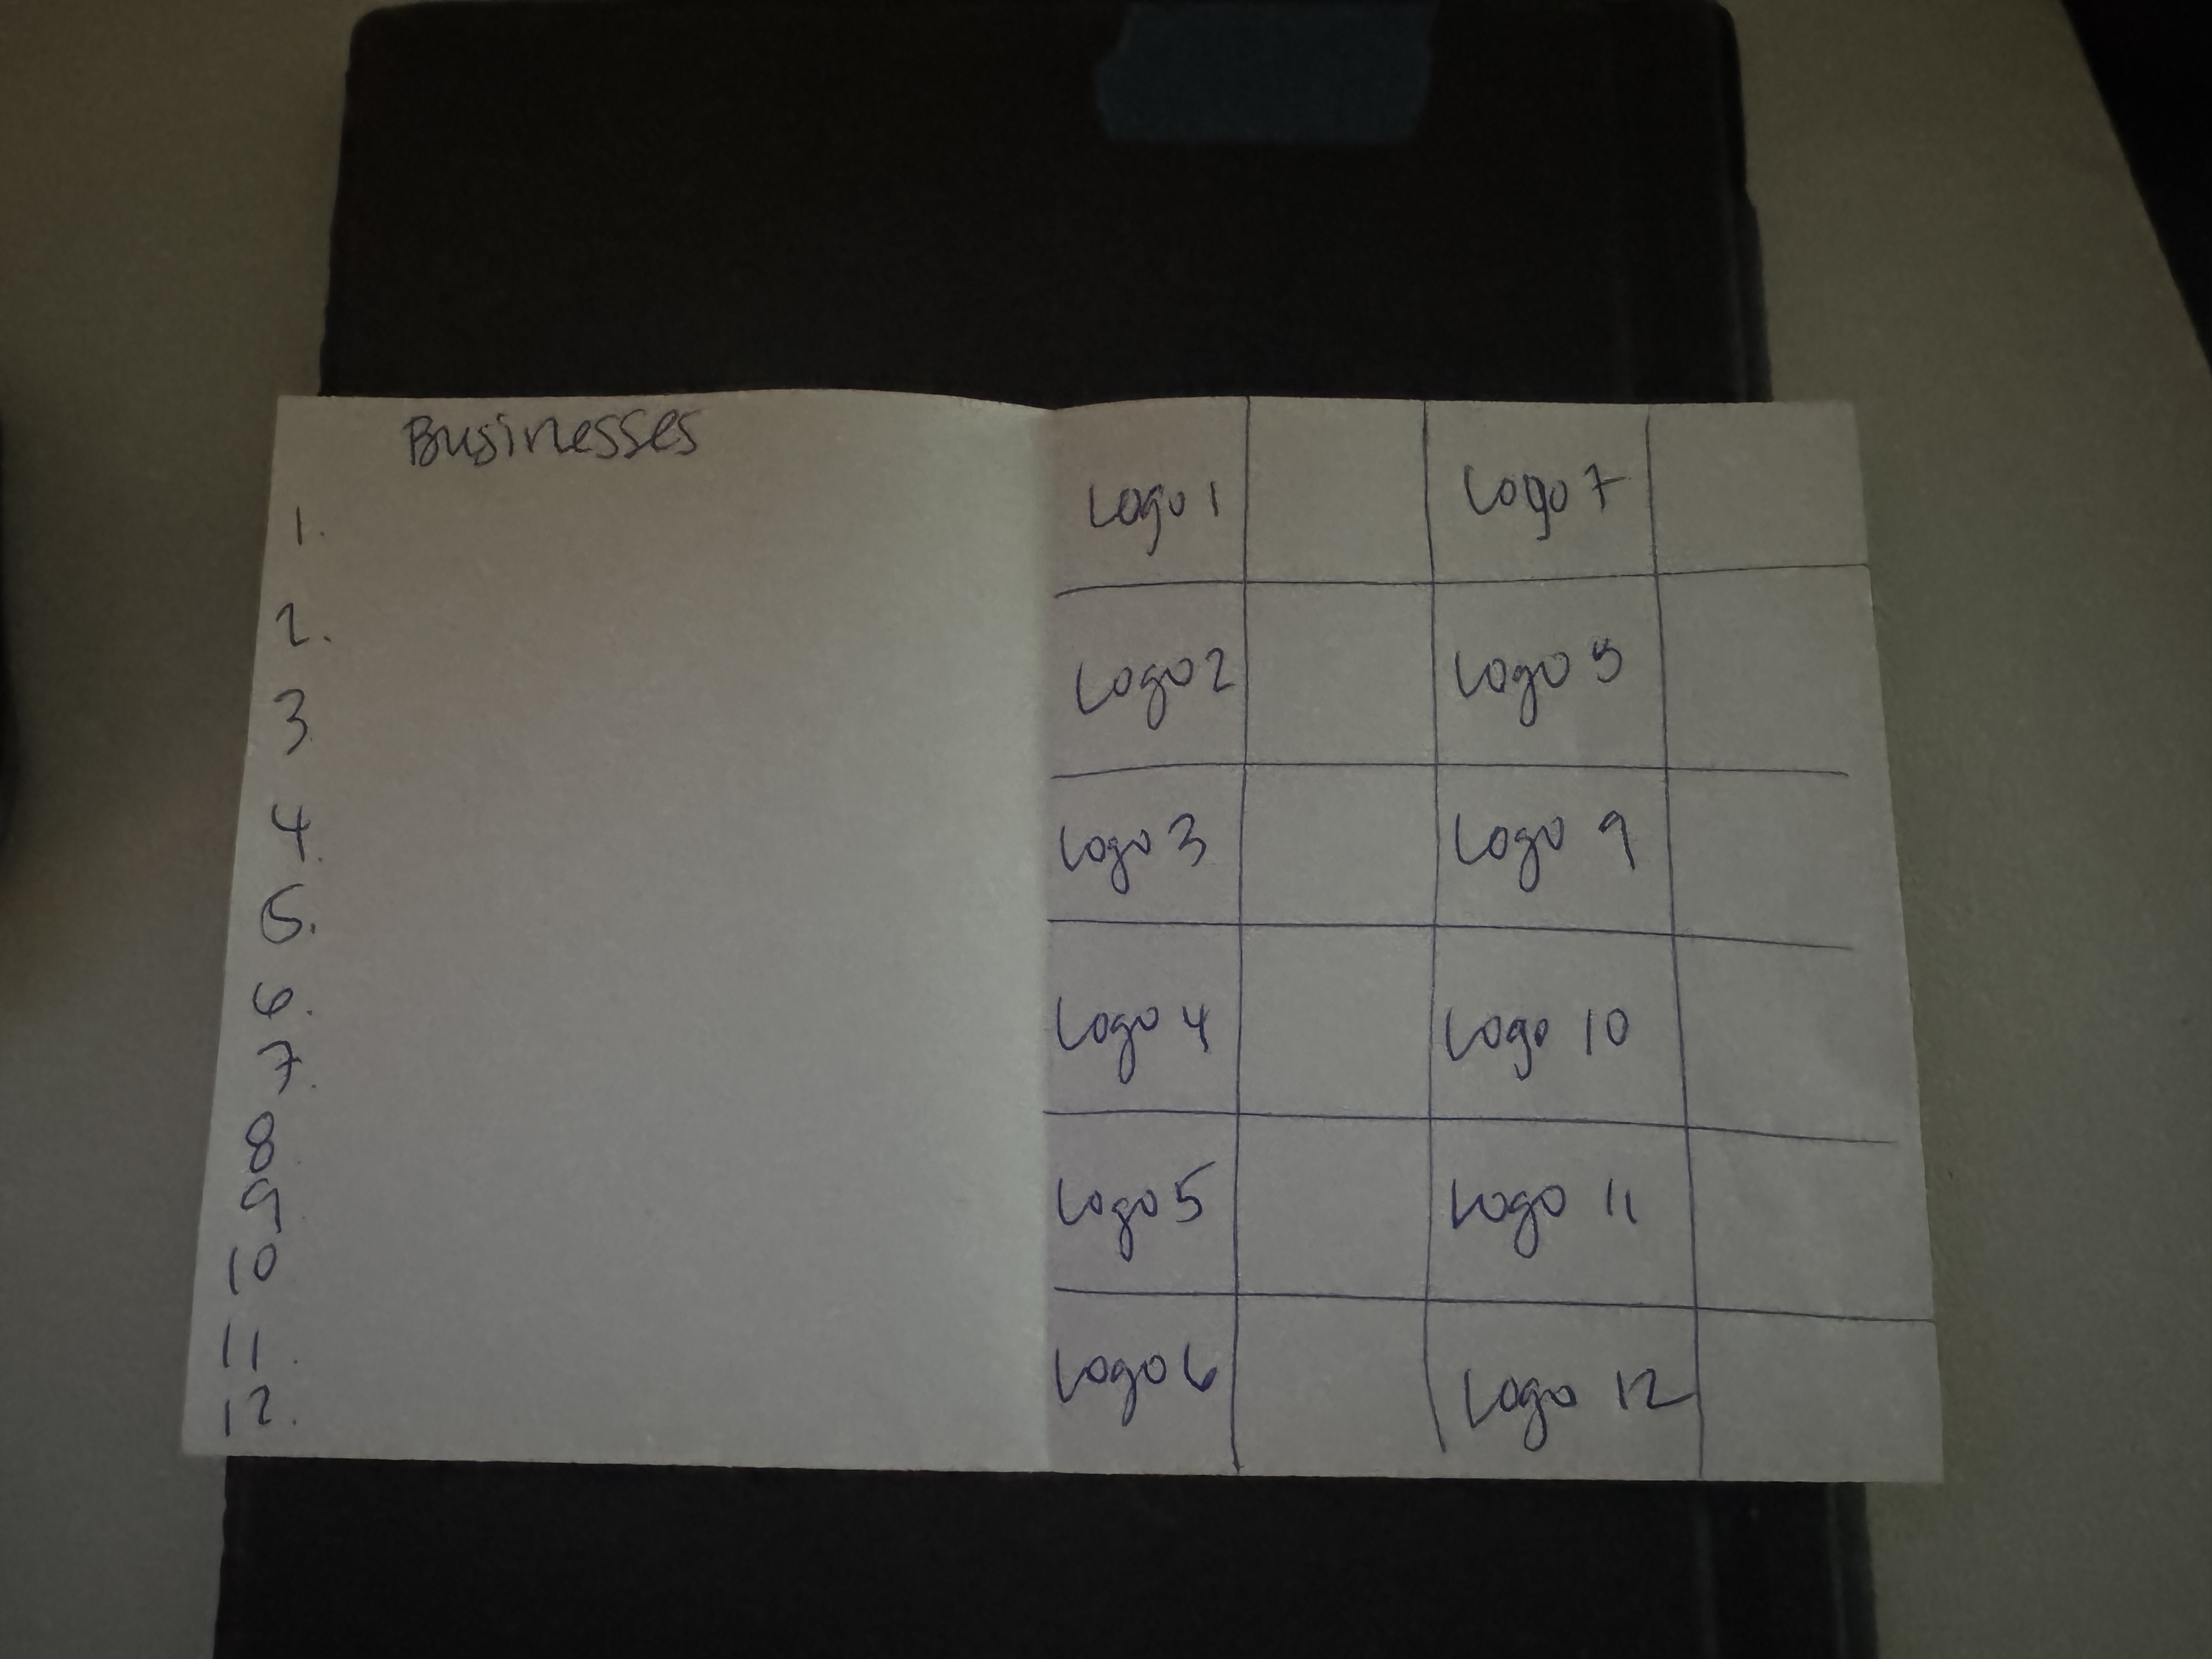 Businesses
1.
2.
3.
4.
5.
6.
7.
8
9.
10
11.
12.
Logo 1 Logo 7
Logo 2 Logo 5
Logo 3 Logo 9
Logo 4 Logo 10
Logo 5 Logo 11
Logo 6 Logo 12